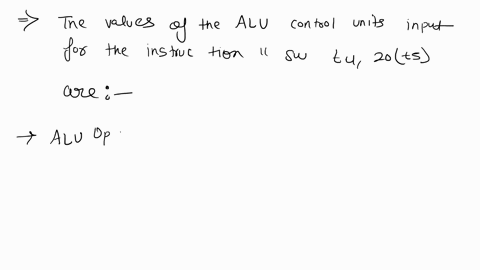 ⇒ The values of the ALU control units input
for the instruction " sw t4, 20(t5)
are:—
→ ALU Op